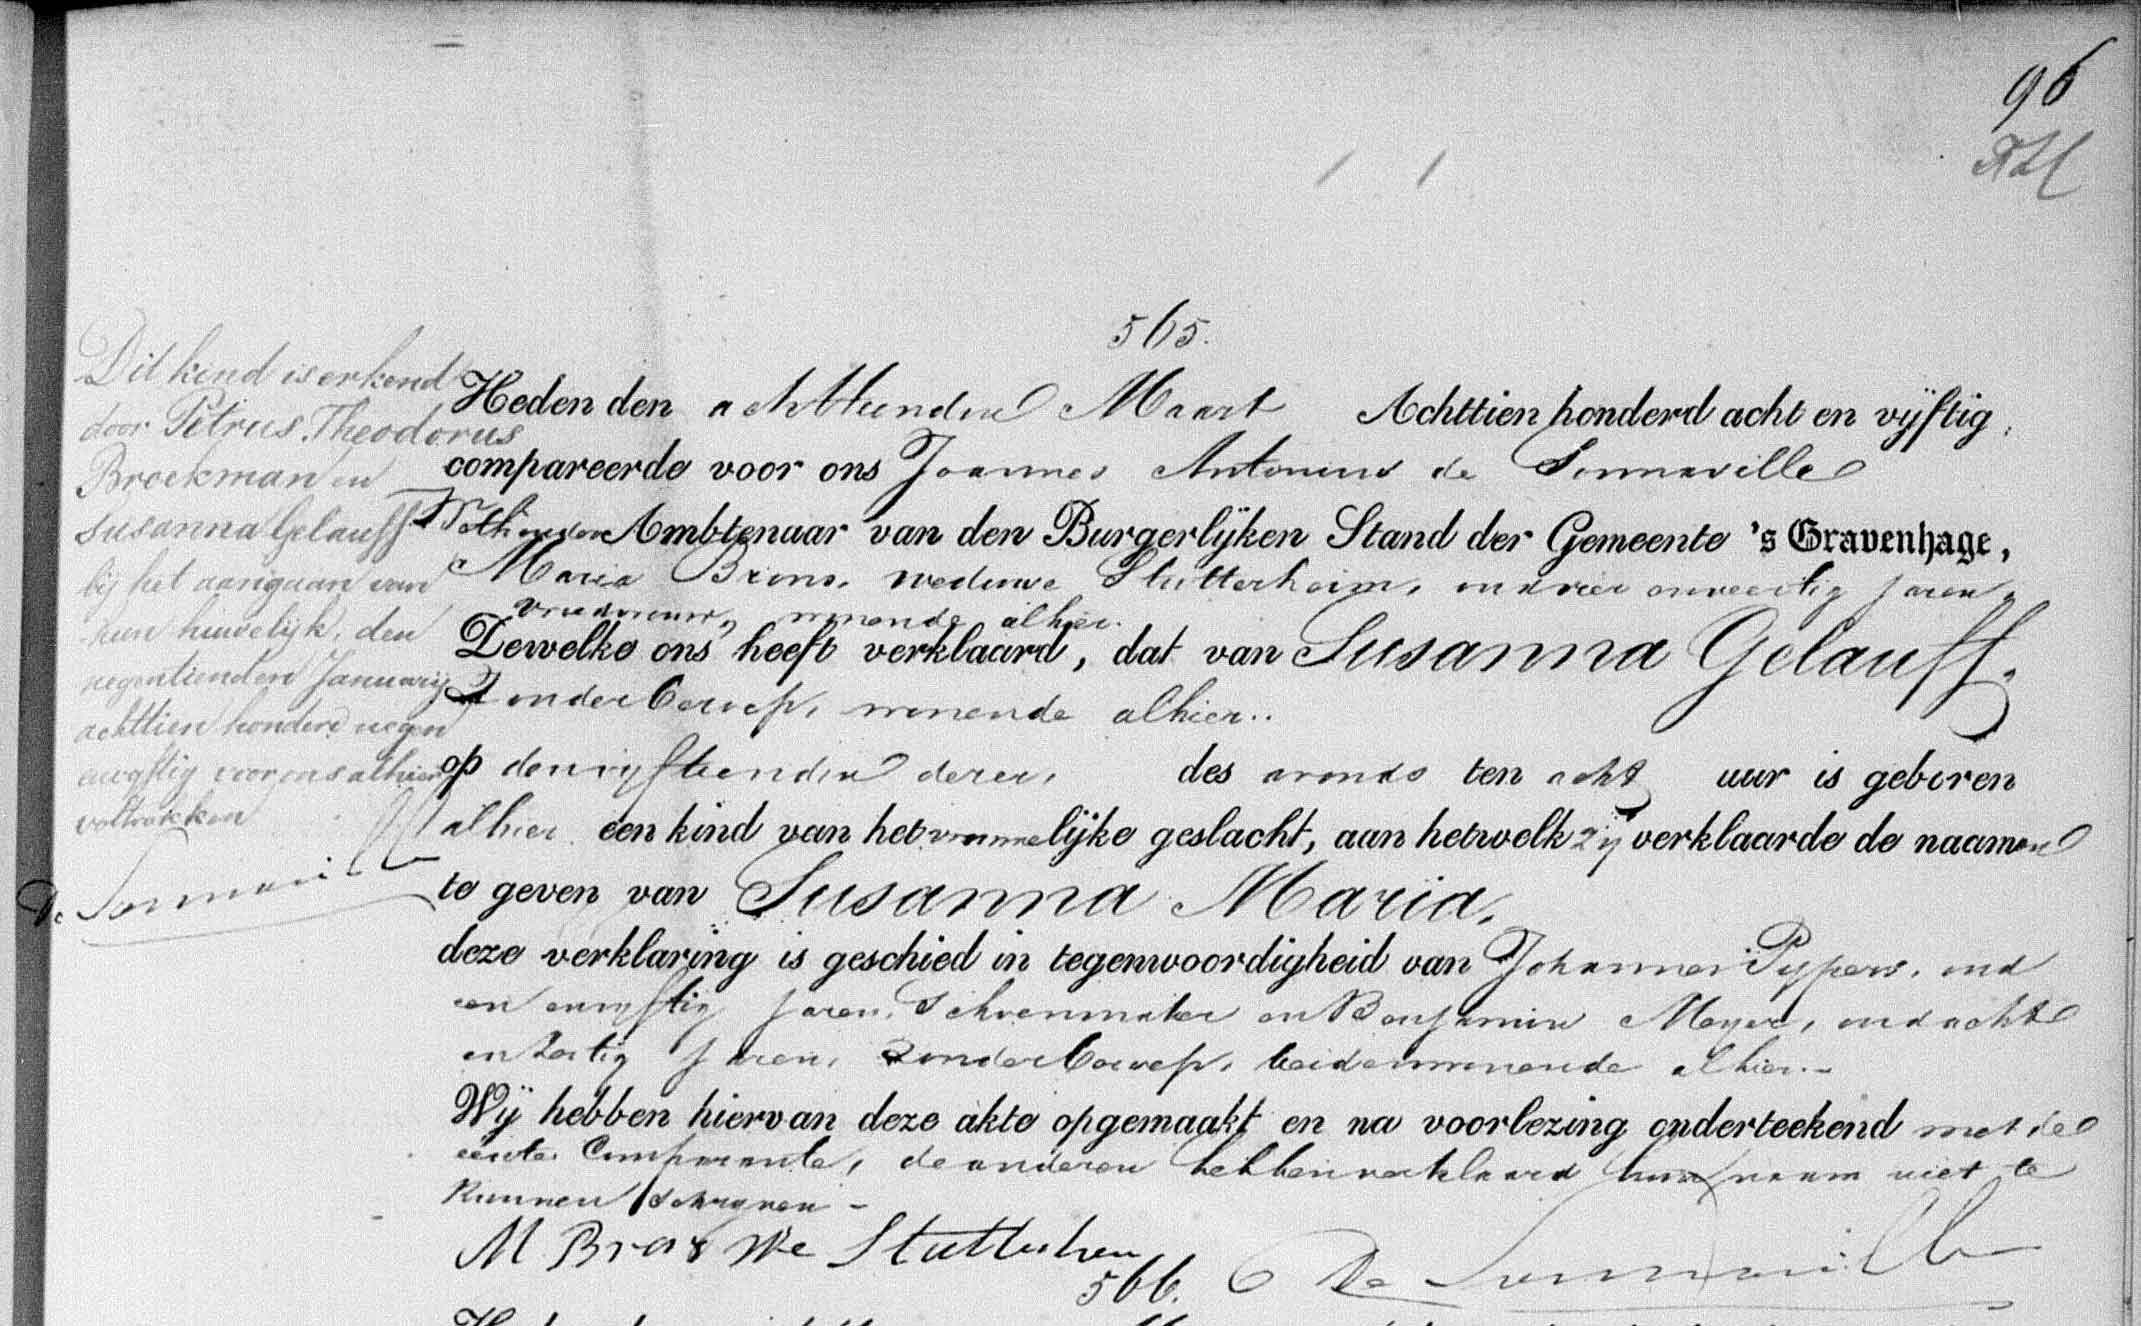 96
565.
Dit kind is erkend
door Petrus Theodorus
Broekman en
Susanna Gelauff
bij het aangaan van
hun huwelijk, den
negentienden Januarij
achttien honderd negen
envijftig voor ons alhier
voltrokken
De Sonnaville
Heden den achttienden Maart Achttien honderd acht en vijftig,
compareerde voor ons Joannes Antonius de Sonnaville
Wethouder Ambtenaar van den Burgerlijken Stand der Gemeente 's Gravenhage,
Maria Brons, weduwe Stutterheim, oud vier enveertig jaren,
vroedvrouw, wonende alhier.
Dewelke ons heeft verklaard, dat van Susanna Gelauff,
Zonder beroep, wonende alhier..
op den vijftienden dezer, des avonds ten acht uur is geboren
alhier een kind van het vrouwelijke geslacht, aan hetwelk zij verklaarde de naamen
te geven van Susanna Maria,
deze verklaring is geschied in tegenwoordigheid van Johannes Pypers, oud
een envijftig jaren, Schoenmaker en Benjamin Meyer, oud acht
en zestig jaren, zonder beroep, beiden wonende alhier.-
Wij hebben hiervan deze akte opgemaakt en na voorlezing onderteekend met de
eerste Comparante, de anderen hebben verklaard hun naam niet te
kunnen schrijven -
M Brons We Stutterheim
De Sonnaville
566.